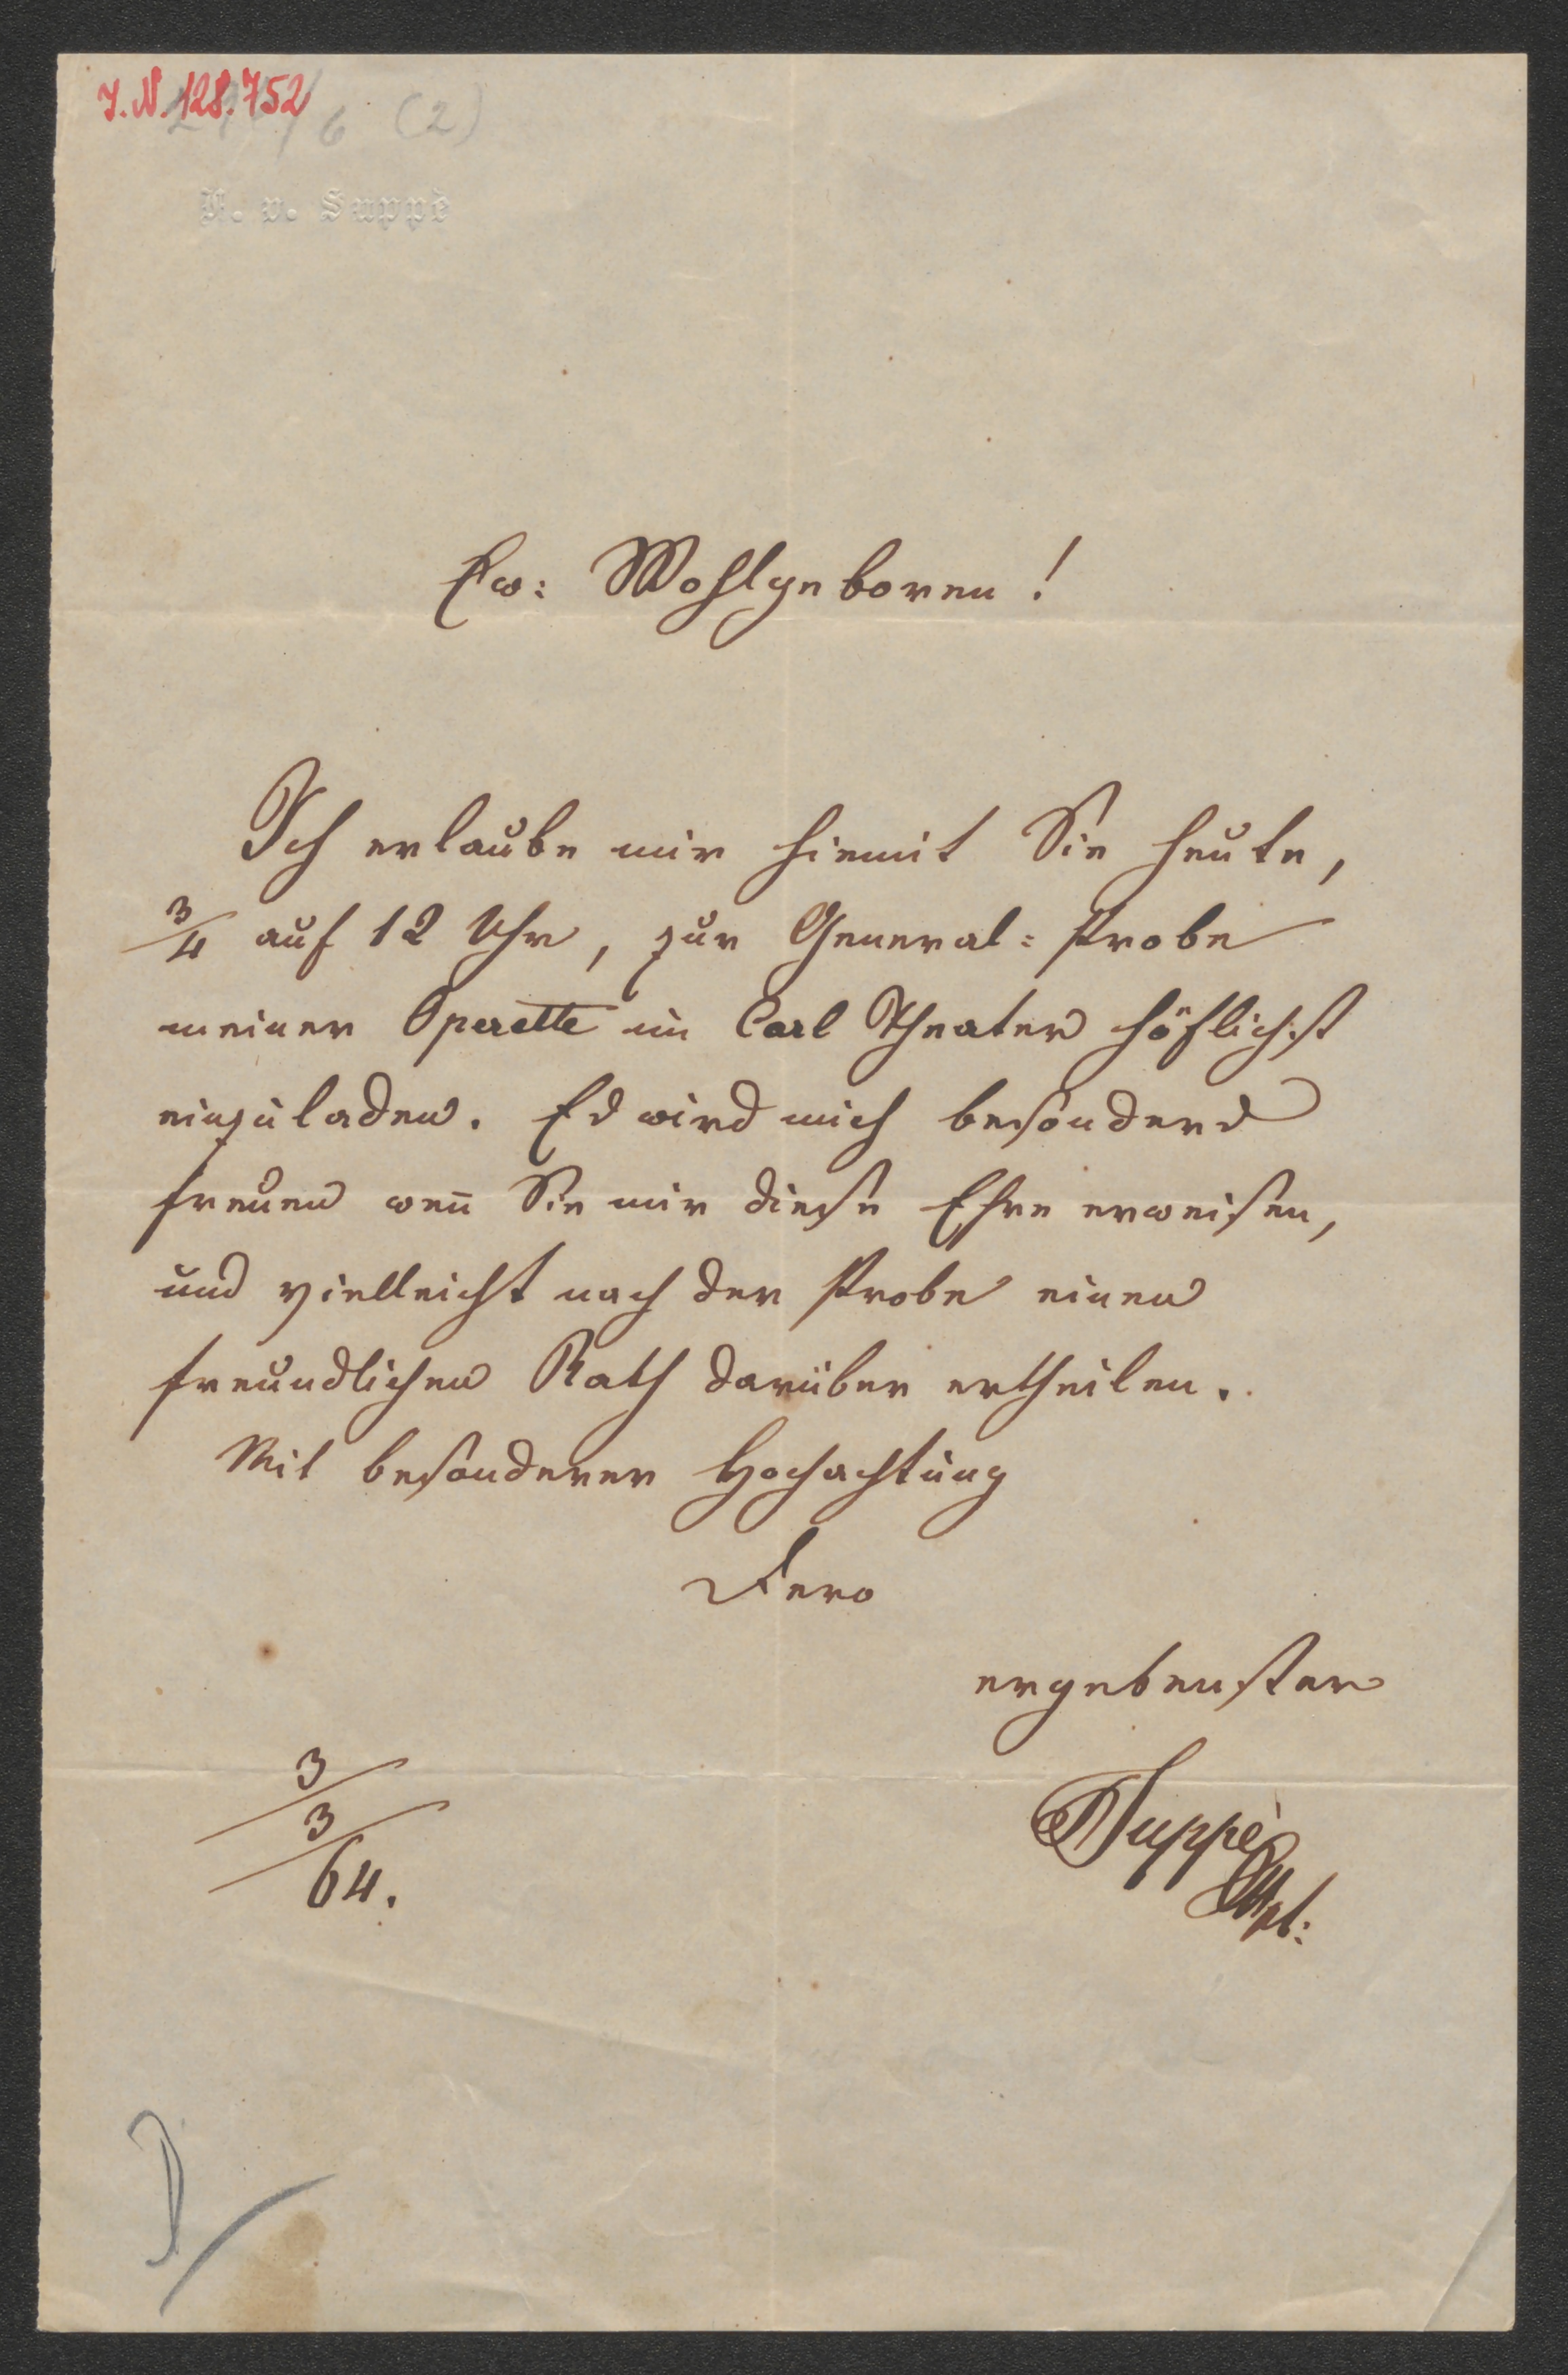 I. N. 128.752
6 (2)
F. v. Suppè
Ew: Wohlgeboren!
Ich erlaube mir hiemit Sie heute,
3/4 auf 12 Uhr, zur General=Probe
meiner Operette im Carl Theater höflichst
einzuladen. Es wird mich besonders
freuen weñ Sie mir diese Ehre erweisen,
und vielleicht nach der Probe einen
freundlichen Rath darüber ertheilen.
Mit besonderer Hochachtung
Dero
ergebenster
Suppè
3/3/64.